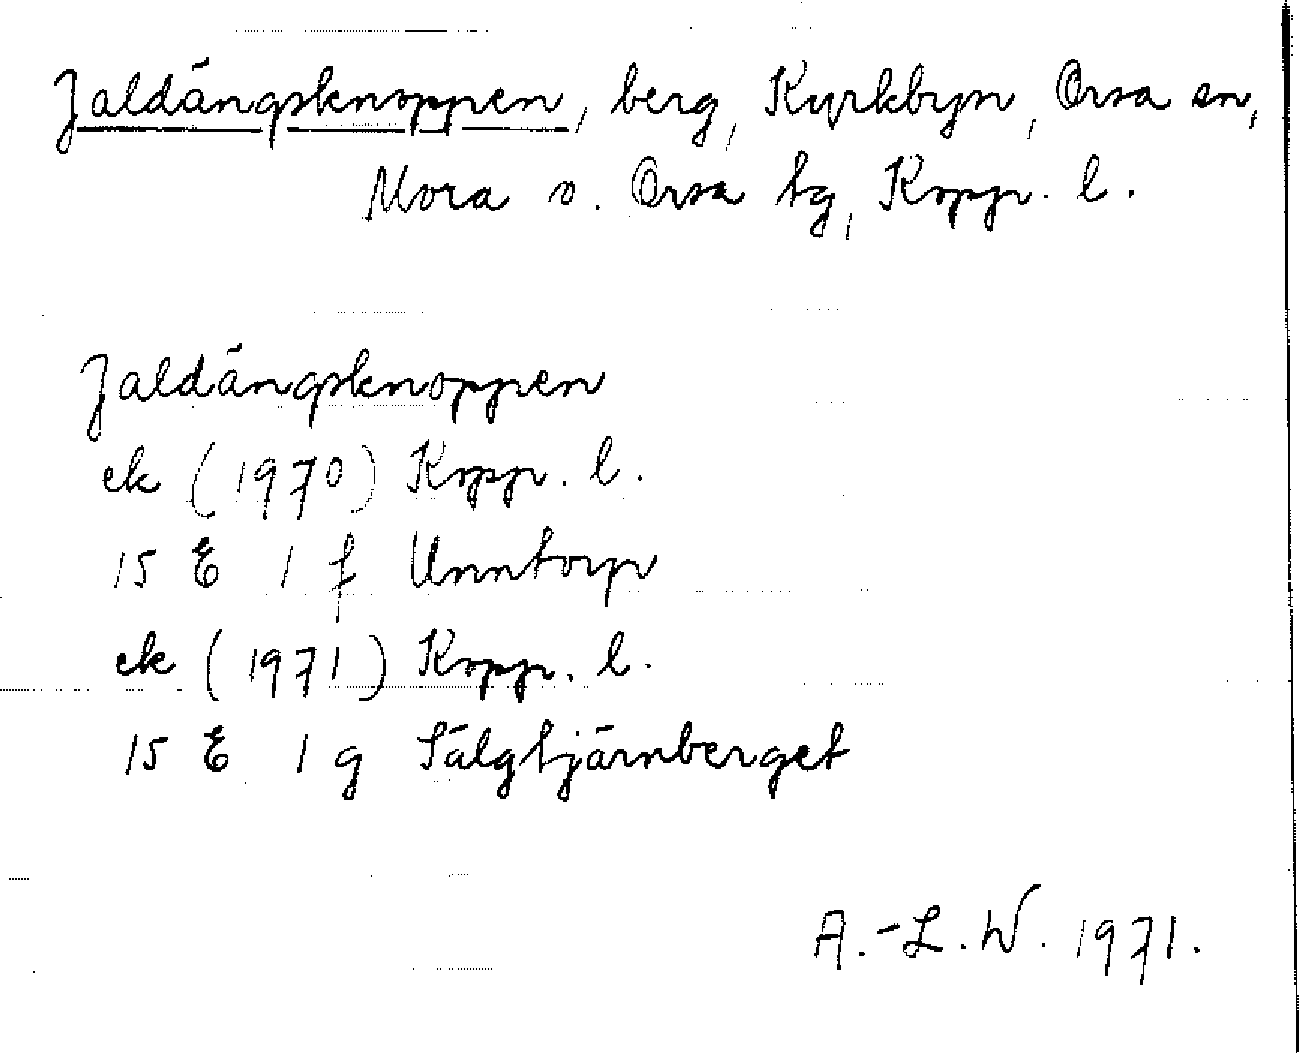 Jaldängsknoppen, berg, Kyrkbyn, Orsa sn,
Mora o. Orsa tg, Kopp. l.
Jaldängsknoppen
ek (1970) Kopp. l.
15 E 1 f Unntorp
ek (1971) Kopp. l.
15 E 1 g Sälgtjärnberget
A.-L. W. 1971.